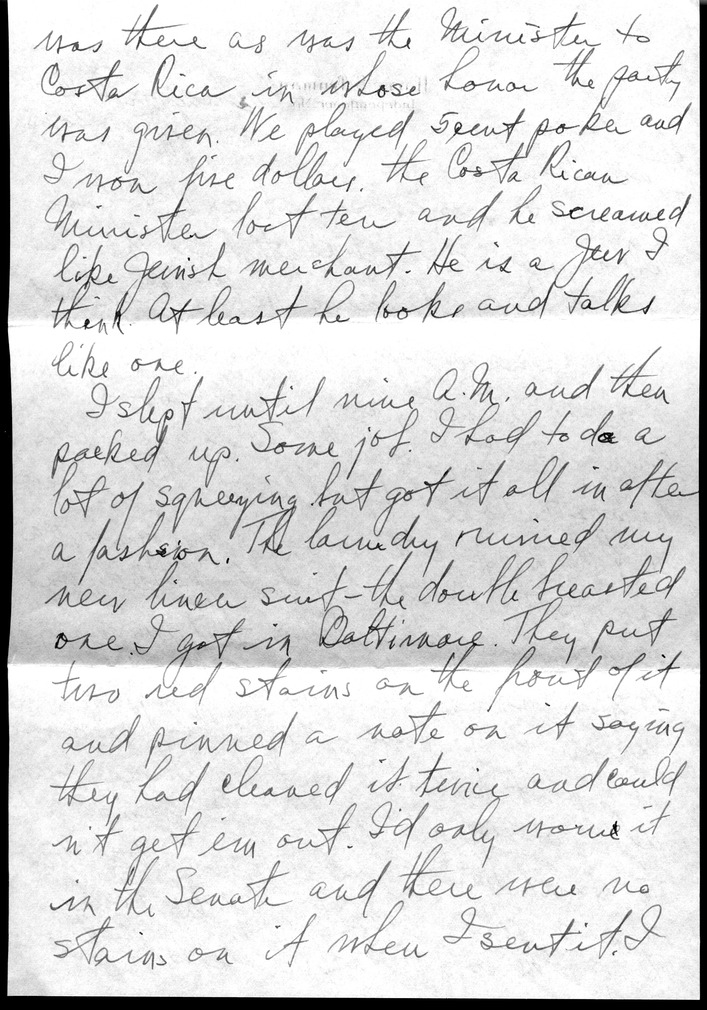 was there as was the Minister to
Costa Rica in whose honor the party
was given. We played 5cent poker and
I won five dollars. the Costa Rican
Minister lost ten and he screamed
like Jewish merchant. He is a Jew I
think. At least he looks and talks
like one.
I slept until nine A.M. and then
packed up. Some job. I had to do a
lot of squeezing but got it all in after
a fashion. The laundry ruined my
new linen suit-the double breasted
one. I got in Baltimore. They put
two red stains on the front of it
and pinned a note on it saying
they had cleaned it twice and could
n't get em out. I'd only worn it
in the Senate and there were no
stains on it when I sent it. I